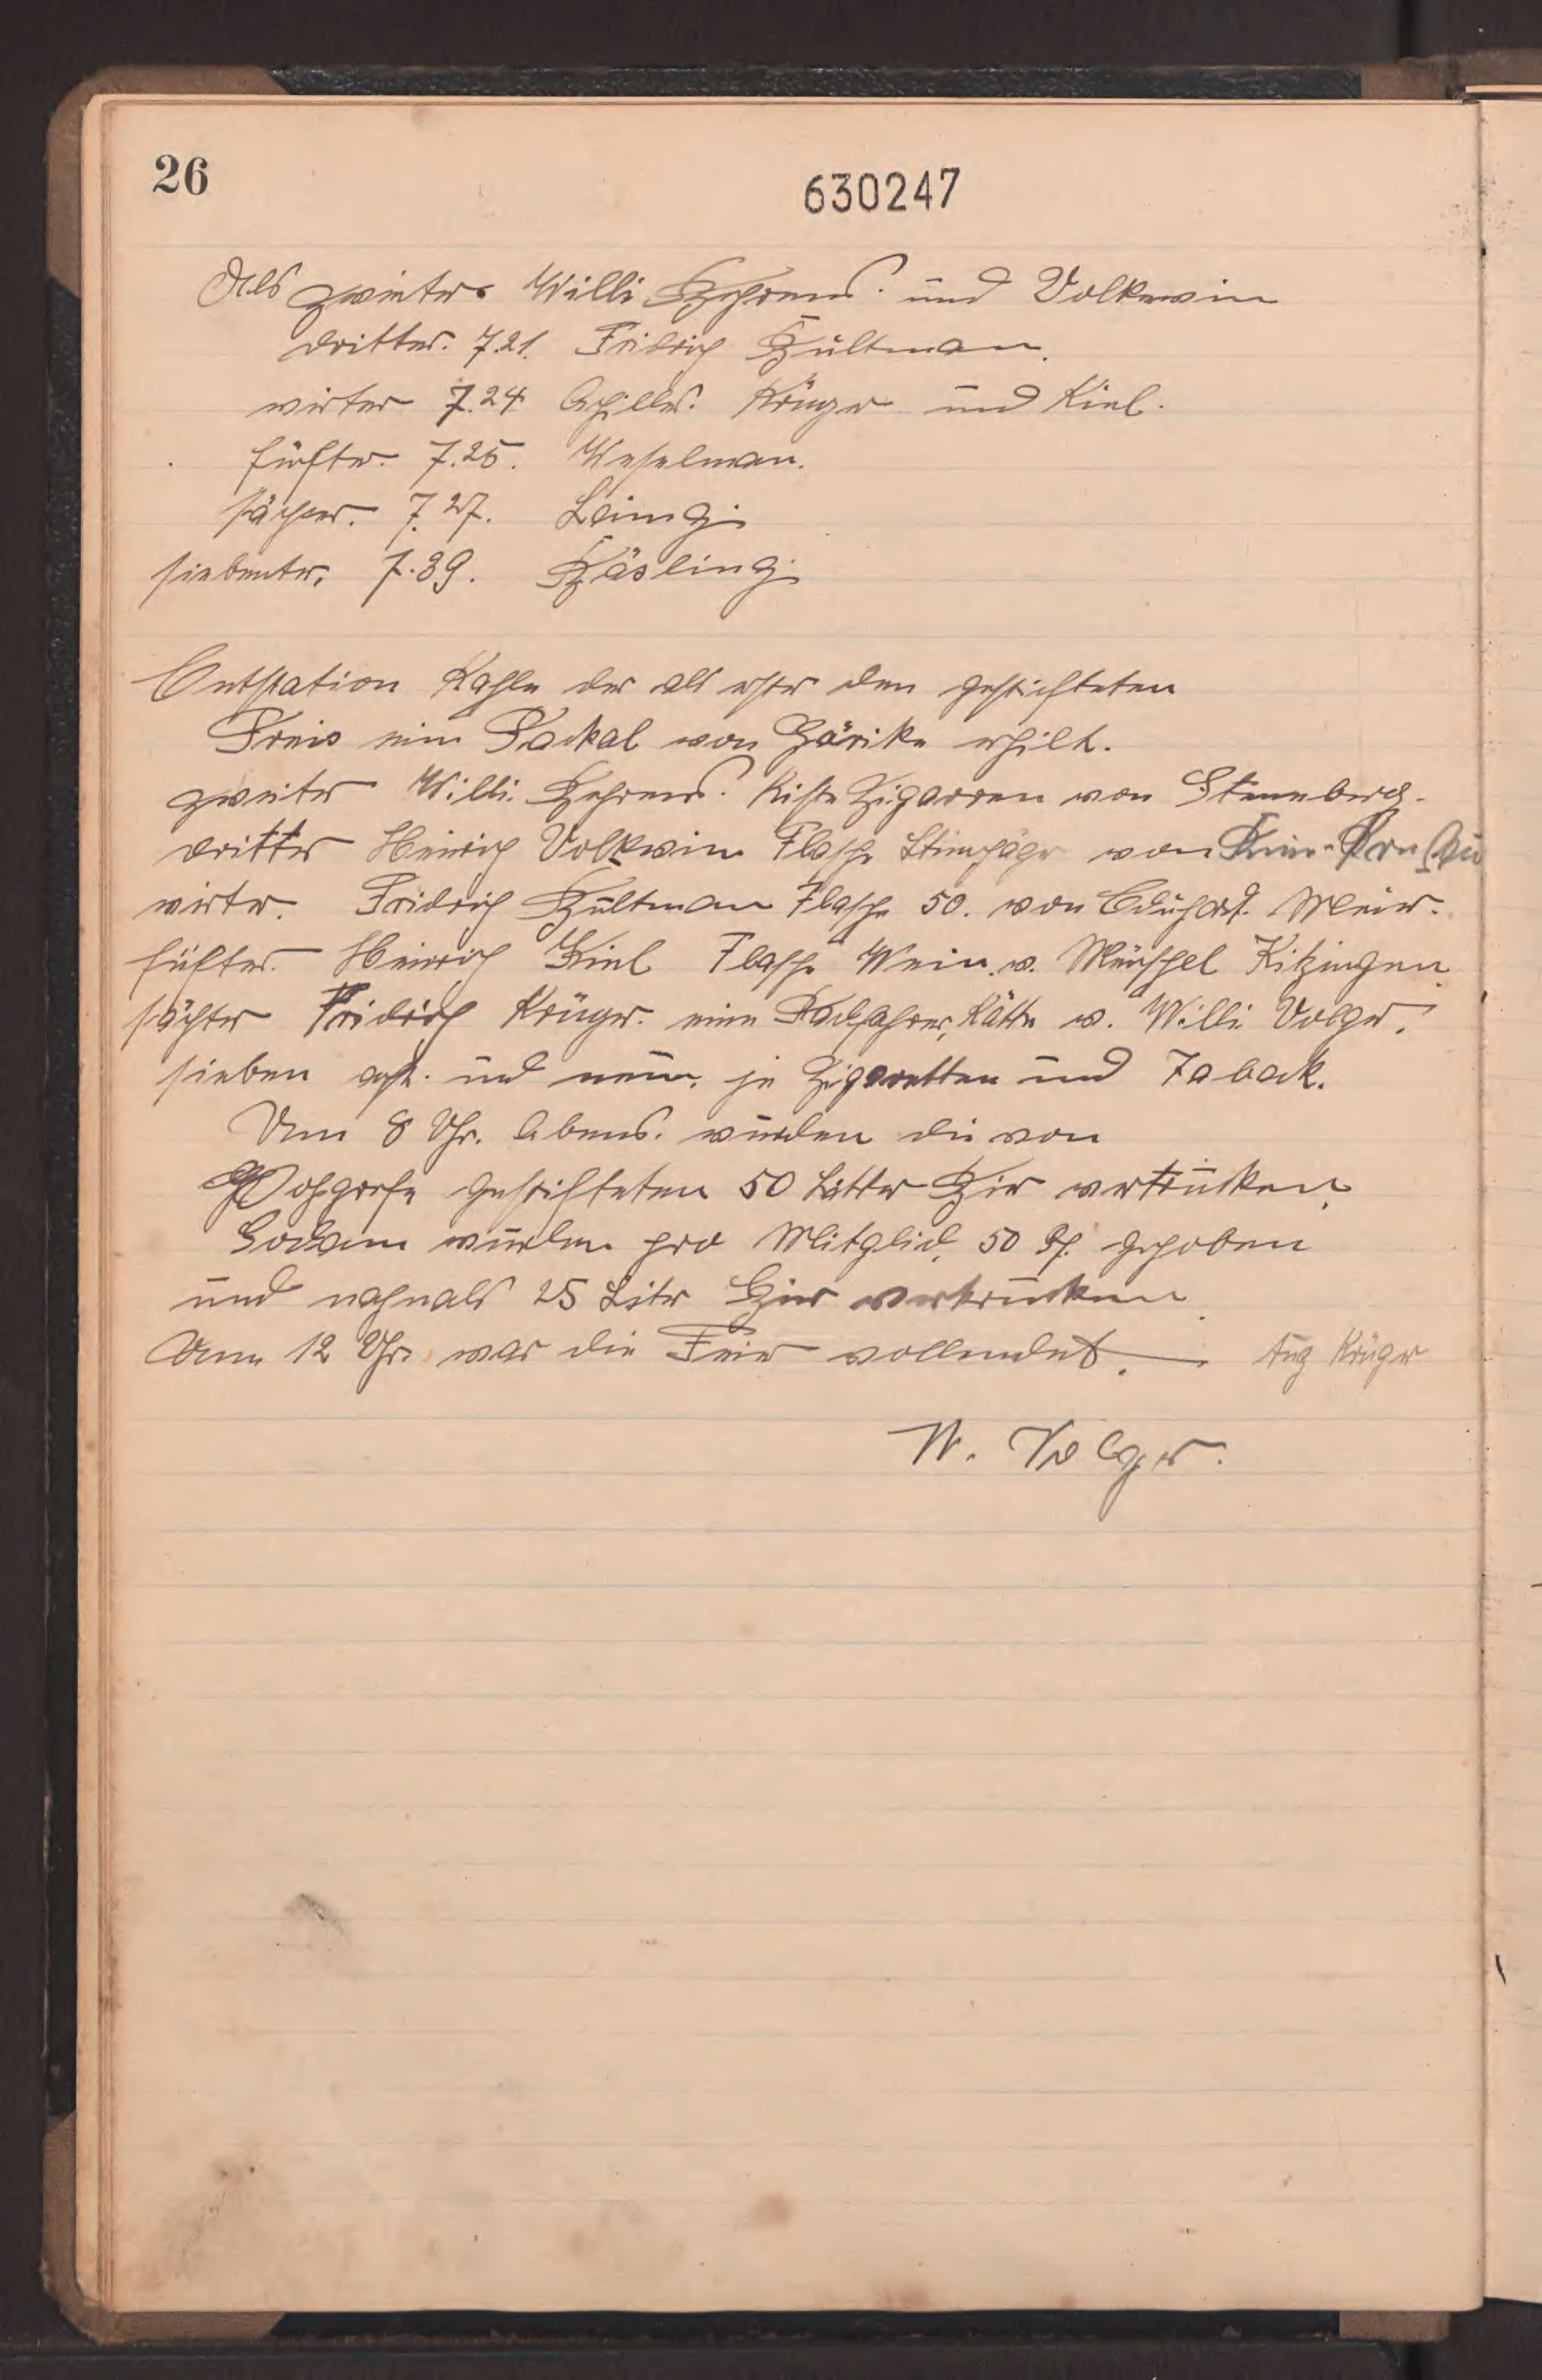 26
630247
Als zweiter Willi Behrens. und Volkewin
dritter. 7.21. Fridrich Bültman.
virter 7.24 Achilles. Krüger und Kiel.
fünfter. 7.25. Weselman.
sächser. 7.27. Leimg.
siebenter, 7.39. Bäsling.
Endstation Kahle der als erster den gestifteten
Preis eine Packal von Gärike erhilt.
zweiter Willi Behrens. Kiste Zigarren von Stenneberg.
dritter Heinrich Volkewin Flasche Steinhäger von
virter. Fridrich Bültman Flasche 50. von Eduhard. Meier.
fünfter. Heinrich Kiel Flasche Wein. v. Kitzingen
sächter Fridrich Krüger. eine Radfahrer, Kätte v. Willi Volger.
sieben acht. und neun. je Zigaretten und Taback.
Um 8 Uhr. Abens. wurden die von
gestifteten 50 Litter Bir vertrunken.
Sodann wurden pro Mitglid. 50 Pf. gehoben
und nochmals 25 Liter Bier vertrunken
Um 12 Uhr. war die Feier vollendet. Aug Krüger
W. Volger.